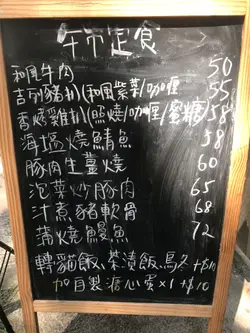 午市定食
和風牛肉 50
吉列豬扒(和風紫菜/咖喱 55
香烤雞扒(照燒/咖喱/蜜糖) 58
海塩燒鯖魚 58
豚肉生薑燒 60
泡菜炒豚肉 65
汁煮豬軟骨 68
蒲燒鰻魚 72
轉貓飯、茶漬飯、烏冬 +$10
加自製溏心蛋x1 +$10